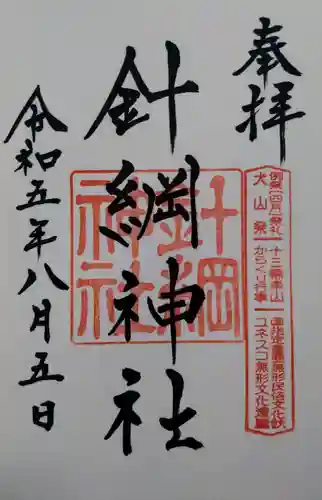 奉拝
例祭(四月)祭礼
犬山祭
十三輌車山
からくり行事
国指定重要無形民俗文化財
ユネスコ無形文化遺産
針綱神社
針綱
神社
令和五年八月五日